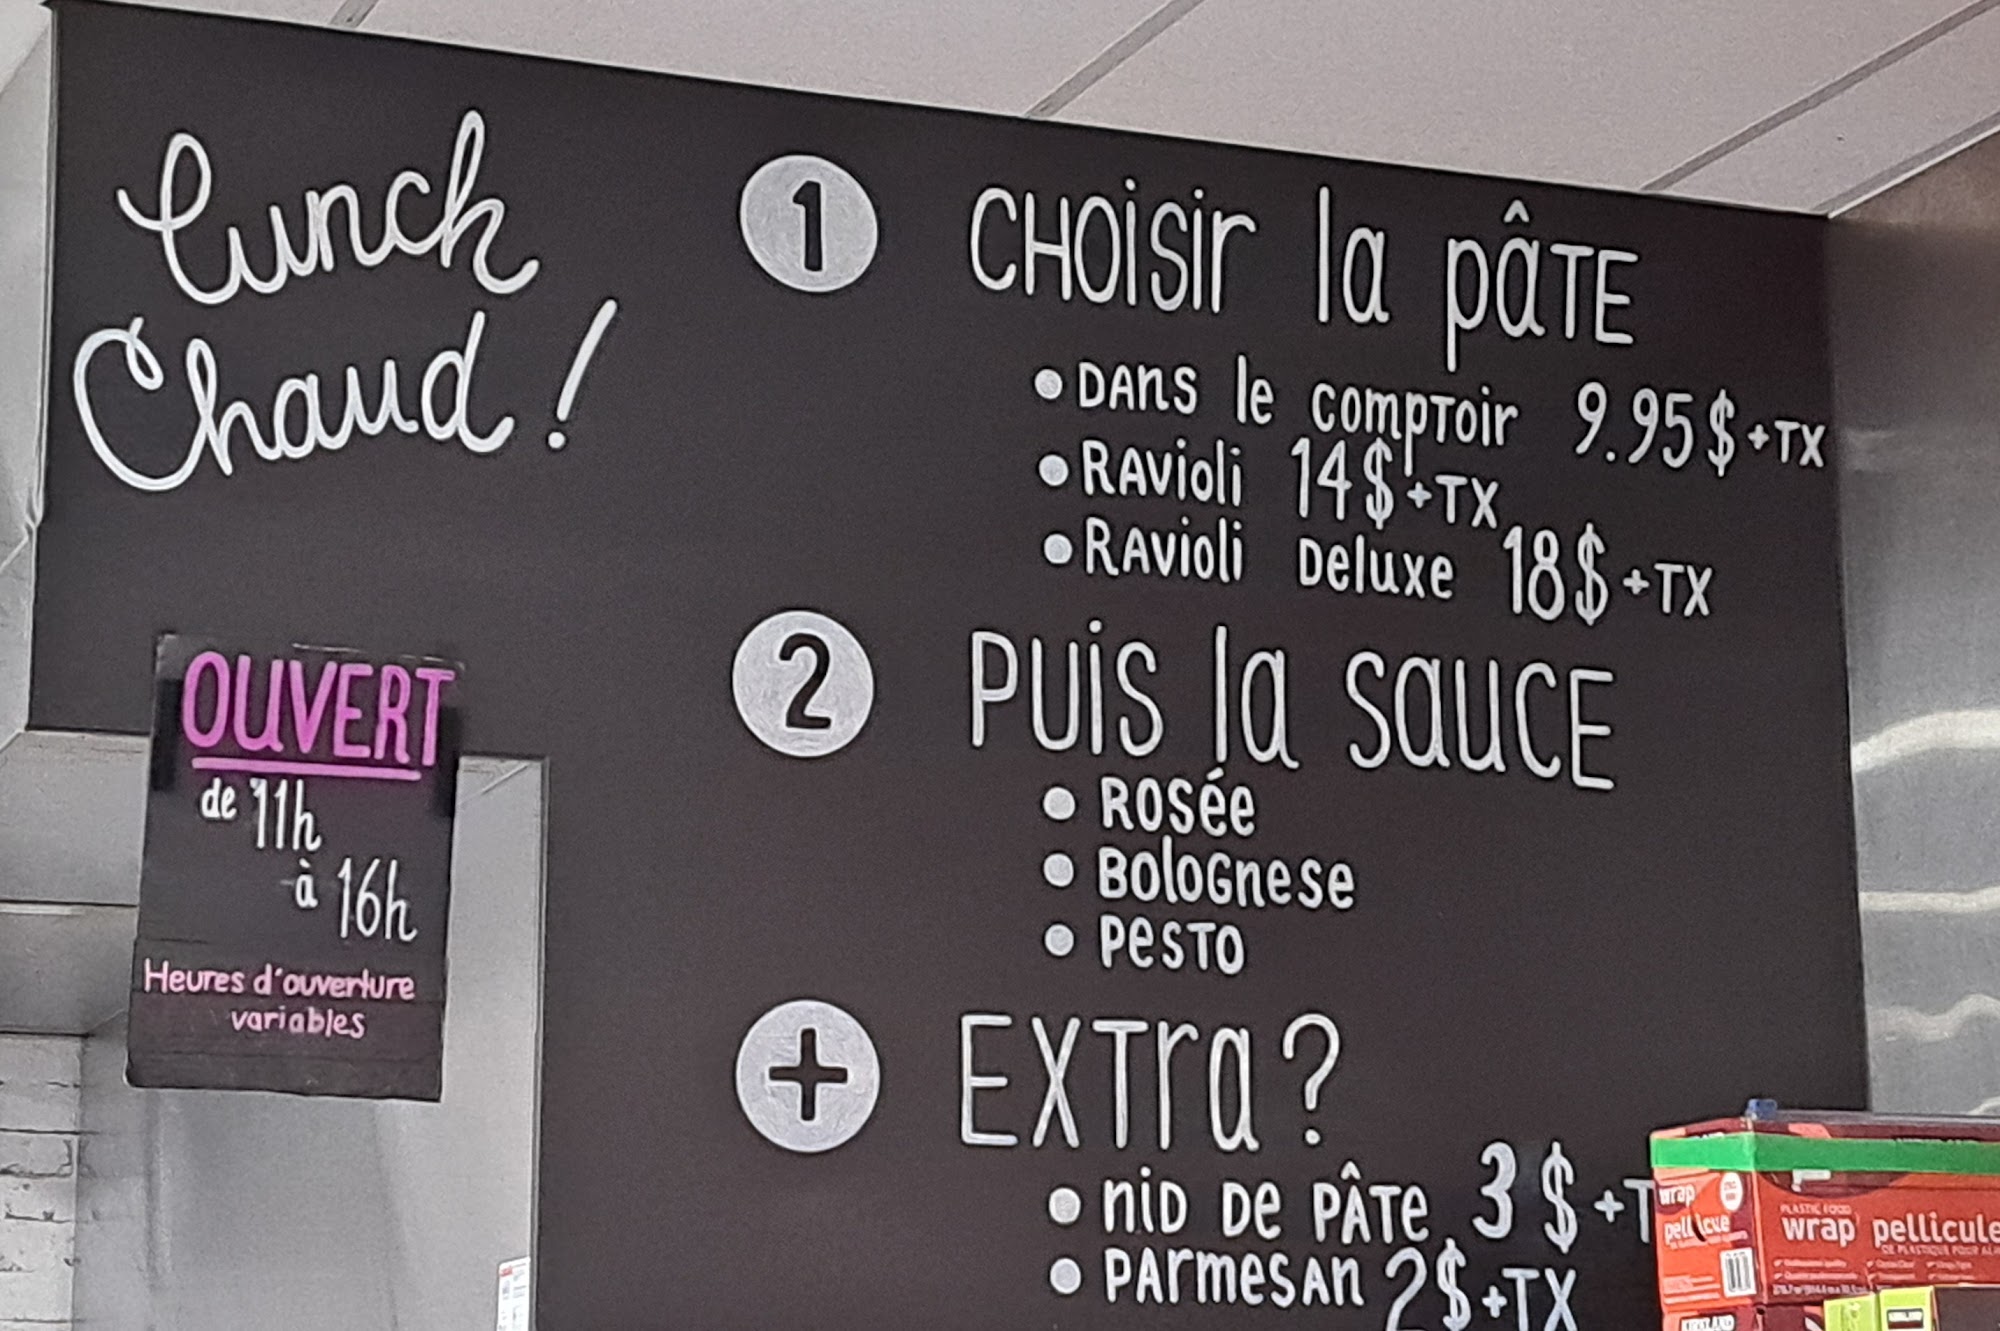 Lunch
Chaud !
1 CHOisir la pâTE
• DANS le compToir 9.95$+TX
• RAvioli 14$+TX
• RAvioli Deluxe 18$+TX
2 PUiS la sauCE
• ROSée
• BoloGnese
• PesTO
+ EXTra?
• niD De PÂTe 3$+T
• PARmesAn 2$+TX
OUVERT
de 11h
à 16h
Heures d'ouverture
variables
wrap
pellicule
PLASTIC FOOD
wrap pellicule
KIRKLAND